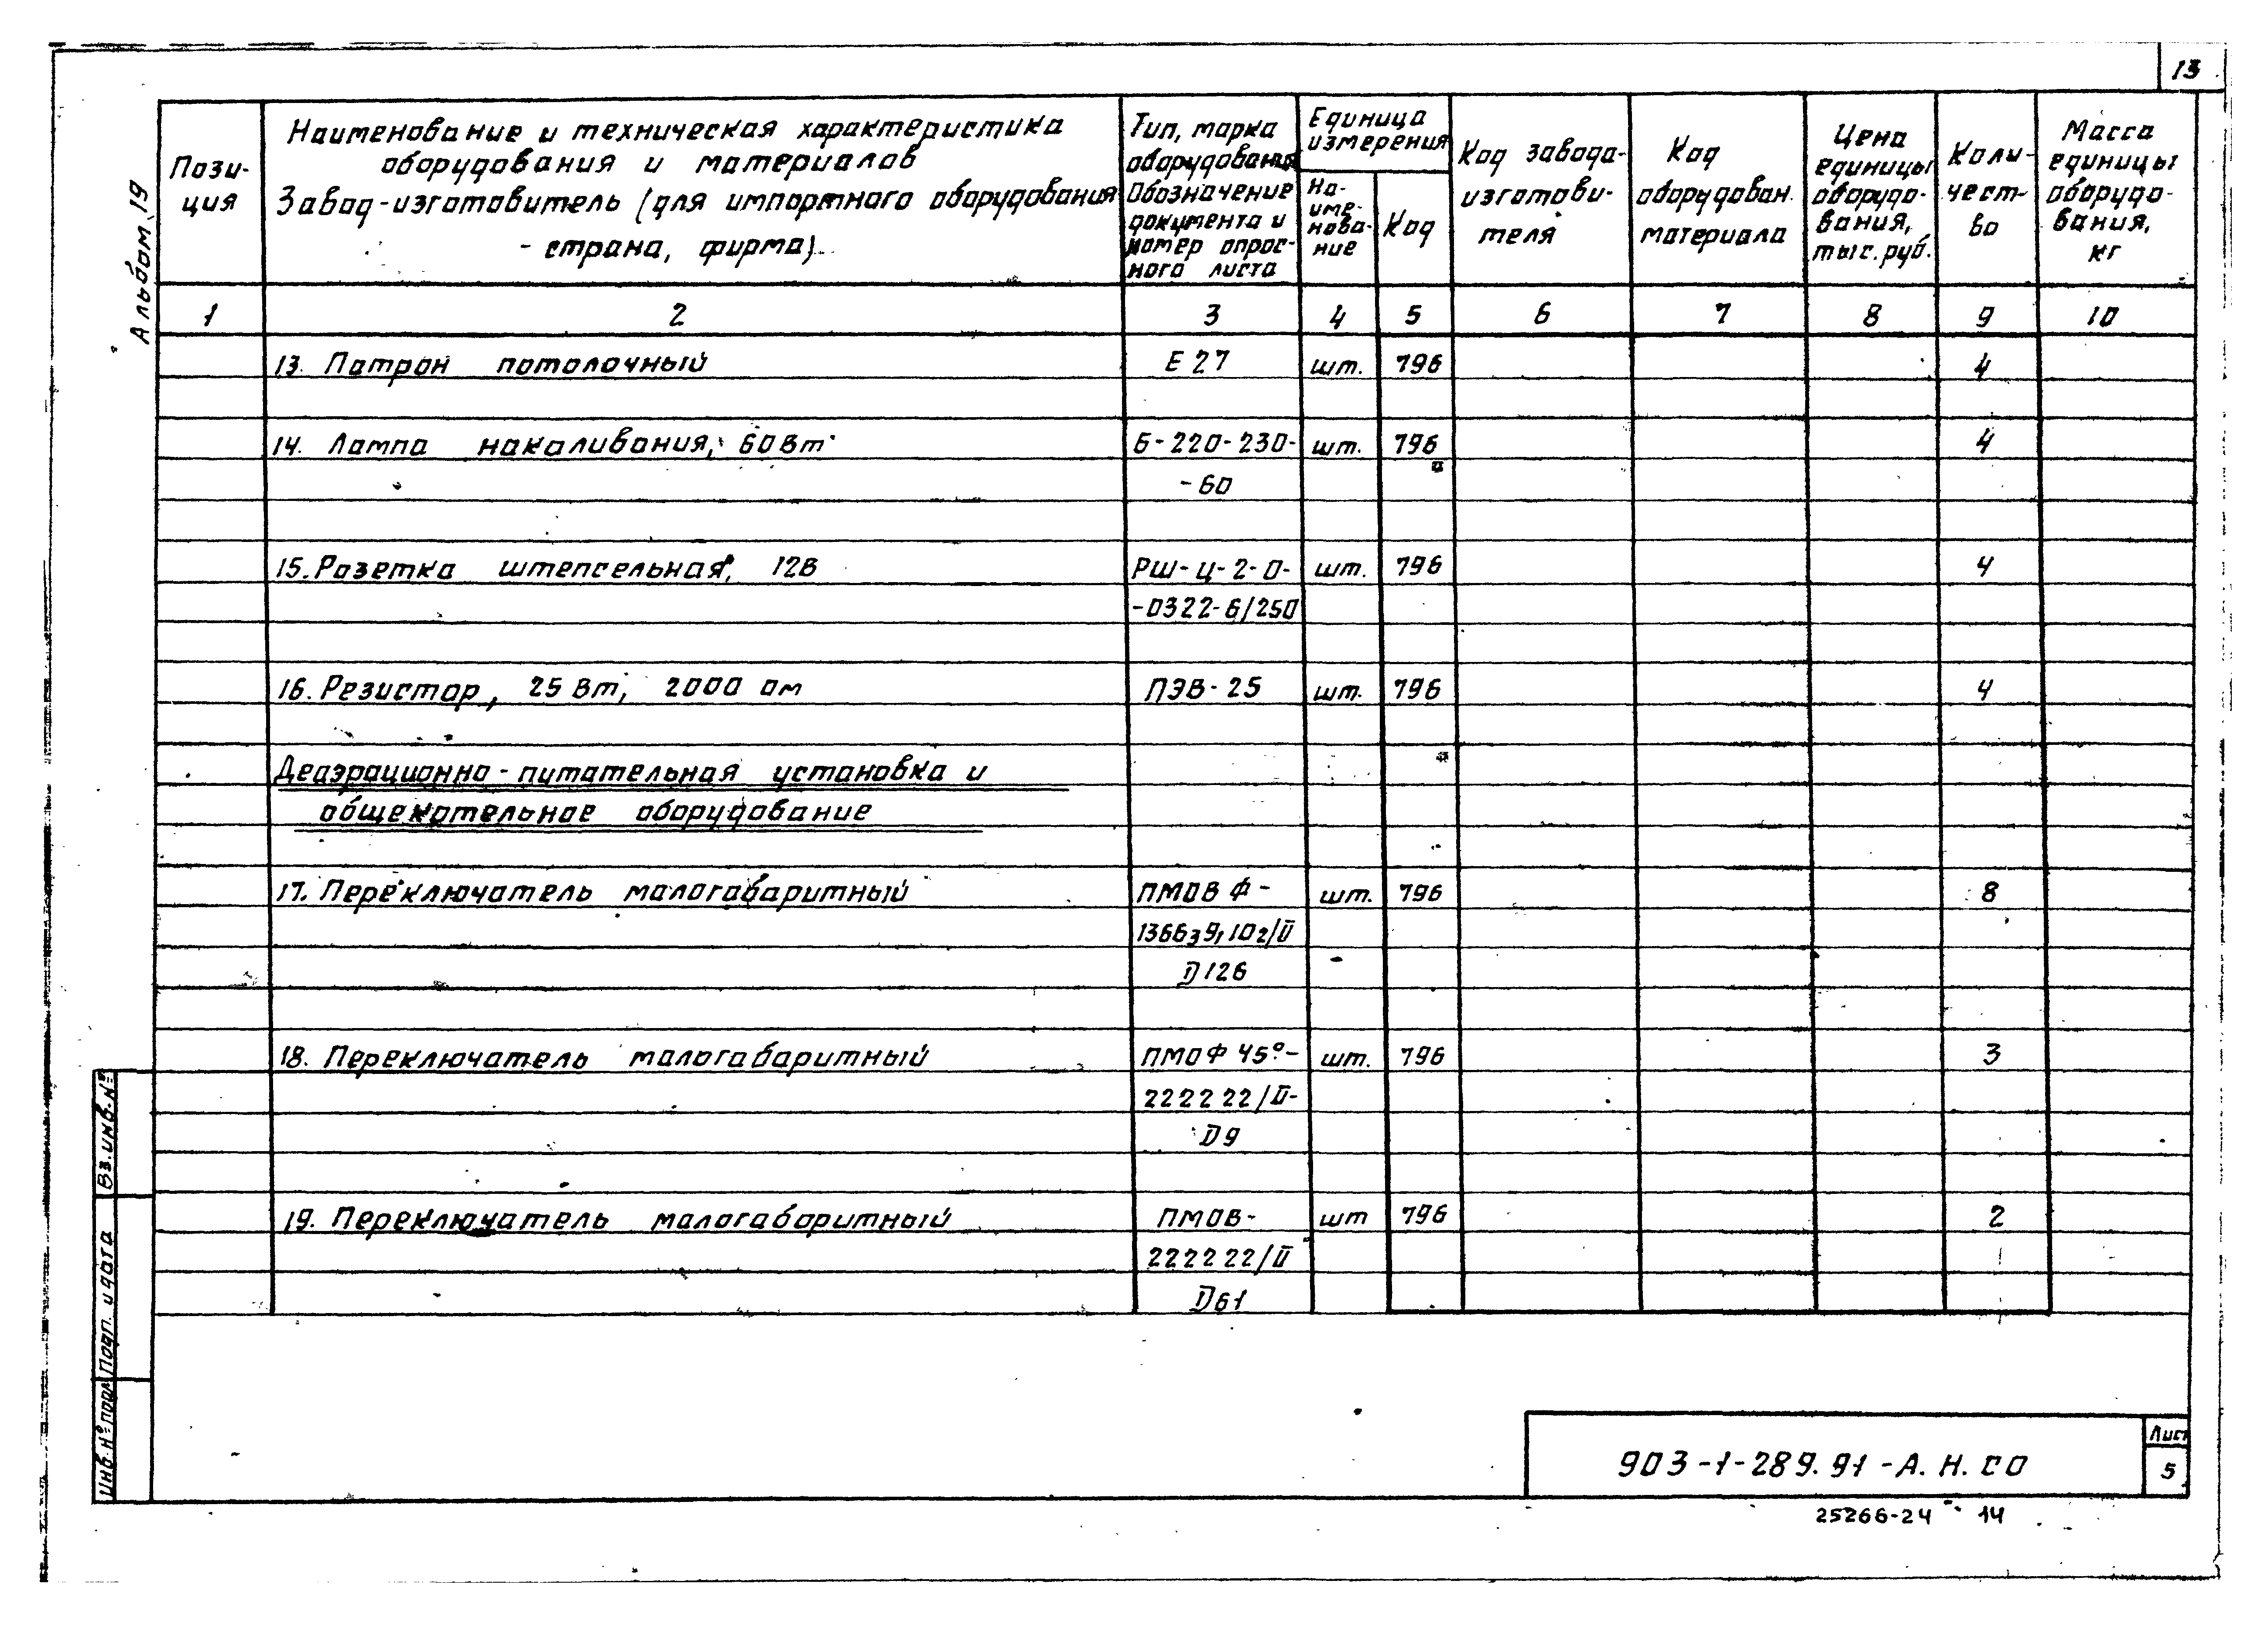 13
Альбом 19
Пози-
ция
Наименование и техническая характеристика
оборудования и материалов
Завод-изготовитель (для импортного оборудования
- страна, фирма)
Тип, марка
оборудования
Обозначение
документа и
номер опрос-
ного листа
Единица
измерения
На-
име-
нова-
ние
Код
Код завода-
изготови-
теля
Код
оборудован.
материала
Цена
единицы
оборудо-
вания,
тыс. руб.
Коли-
чест-
во
Масса
единицы
оборудо-
вания,
кг
1 2 3 4 5 6 7 8 9 10
13. Патрон потолочный Е 27 шт. 796 4
14. Лампа накаливания, 60Вт Б-220-230- шт. 796 4
-60
15. Розетка штепсельная, 12В РШ-Ц-2-0- шт. 796 4
-0322-6/250
16. Резистор, 25 Вт, 2000 ом ПЭВ-25 шт. 796 4
Деаэрационно-питательная установка и
общекотельное оборудование
17. Переключатель малогабаритный ПМОВ Ф- шт. 796 8
136639,102/II
D126
18. Переключатель малогабаритный ПМОФ 45°- шт. 796 3
222222/II-
D9
19. Переключатель малогабаритный ПМОВ- шт 796 2
222222/II
D61
Вз. инв. №
Подп. и дата
Инв. № подл
903-1-289.91-А.Н.СО
Лист
5
25266-24 14